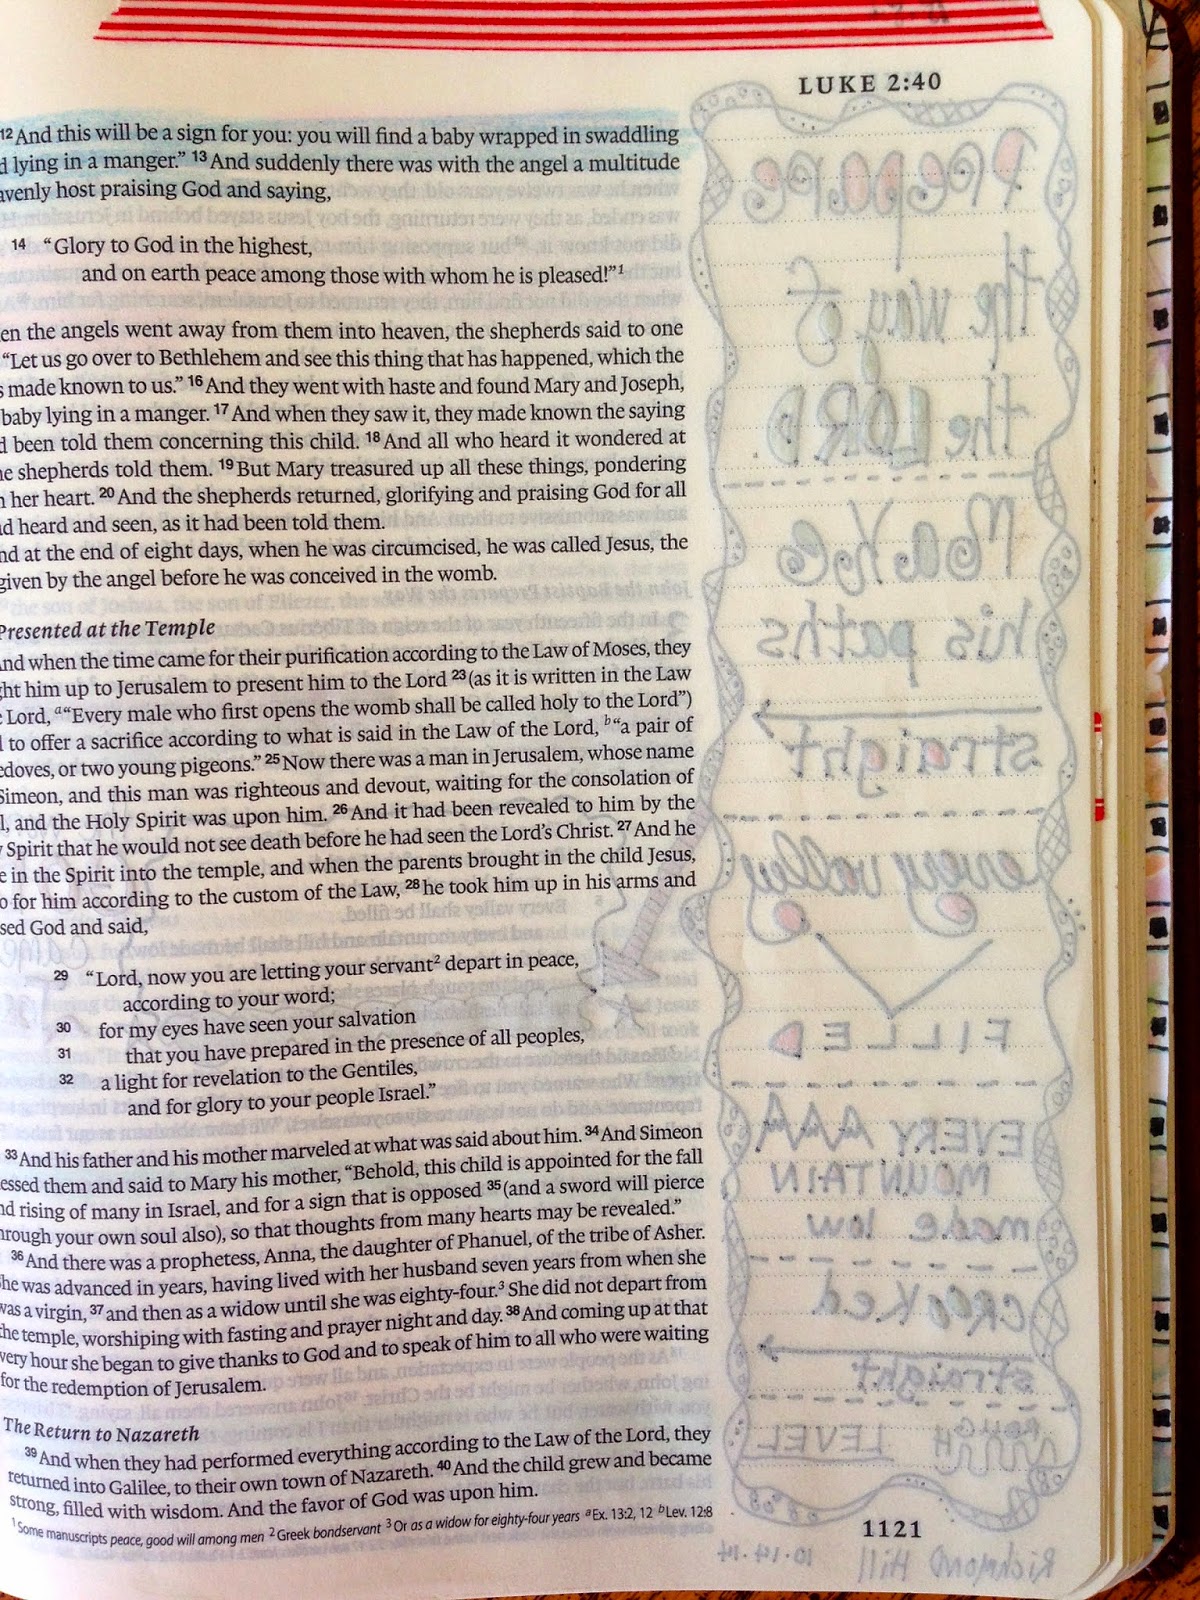 LUKE 2:40
12 And this will be a sign for you: you will find a baby wrapped in swaddling
lying in a manger.” 13 And suddenly there was with the angel a multitude
host praising God and saying,
14 “Glory to God in the highest,
and on earth peace among those with whom he is pleased!”1
the angels went away from them into heaven, the shepherds said to one
“Let us go over to Bethlehem and see this thing that has happened, which the
made known to us.” 16 And they went with haste and found Mary and Joseph,
baby lying in a manger. 17 And when they saw it, they made known the saying
been told them concerning this child. 18 And all who heard it wondered at
shepherds told them. 19 But Mary treasured up all these things, pondering
her heart. 20 And the shepherds returned, glorifying and praising God for all
heard and seen, as it had been told them.
at the end of eight days, when he was circumcised, he was called Jesus, the
given by the angel before he was conceived in the womb.
Presented at the Temple
And when the time came for their purification according to the Law of Moses, they
him up to Jerusalem to present him to the Lord 23 (as it is written in the Law
Lord, a“Every male who first opens the womb shall be called holy to the Lord”)
to offer a sacrifice according to what is said in the Law of the Lord, b“a pair of
or two young pigeons.” 25 Now there was a man in Jerusalem, whose name
Simeon, and this man was righteous and devout, waiting for the consolation of
and the Holy Spirit was upon him. 26 And it had been revealed to him by the
Spirit that he would not see death before he had seen the Lord’s Christ. 27 And he
in the Spirit into the temple, and when the parents brought in the child Jesus,
for him according to the custom of the Law, 28 he took him up in his arms and
God and said,
29 “Lord, now you are letting your servant2 depart in peace,
according to your word;
30 for my eyes have seen your salvation
31 that you have prepared in the presence of all peoples,
32 a light for revelation to the Gentiles,
and for glory to your people Israel.”
33 And his father and his mother marveled at what was said about him. 34 And Simeon
them and said to Mary his mother, “Behold, this child is appointed for the fall
rising of many in Israel, and for a sign that is opposed 35 (and a sword will pierce
through your own soul also), so that thoughts from many hearts may be revealed.”
36 And there was a prophetess, Anna, the daughter of Phanuel, of the tribe of Asher.
She was advanced in years, having lived with her husband seven years from when she
was a virgin, 37 and then as a widow until she was eighty-four.3 She did not depart from
the temple, worshiping with fasting and prayer night and day. 38 And coming up at that
very hour she began to give thanks to God and to speak of him to all who were waiting
for the redemption of Jerusalem.
The Return to Nazareth
39 And when they had performed everything according to the Law of the Lord, they
returned into Galilee, to their own town of Nazareth. 40 And the child grew and became
strong, filled with wisdom. And the favor of God was upon him.
1 Some manuscripts peace, good will among men 2 Greek bondservant 3 Or as a widow for eighty-four years a Ex. 13:2, 12 b Lev. 12:8
1121
Prepare
the way of
the LORD
Make
his paths
straight
every valley
FILLED
EVERY
MOUNTAIN
made low
CROOKED
straight
ROUGH
LEVEL
Richmond Hill 10.14.14